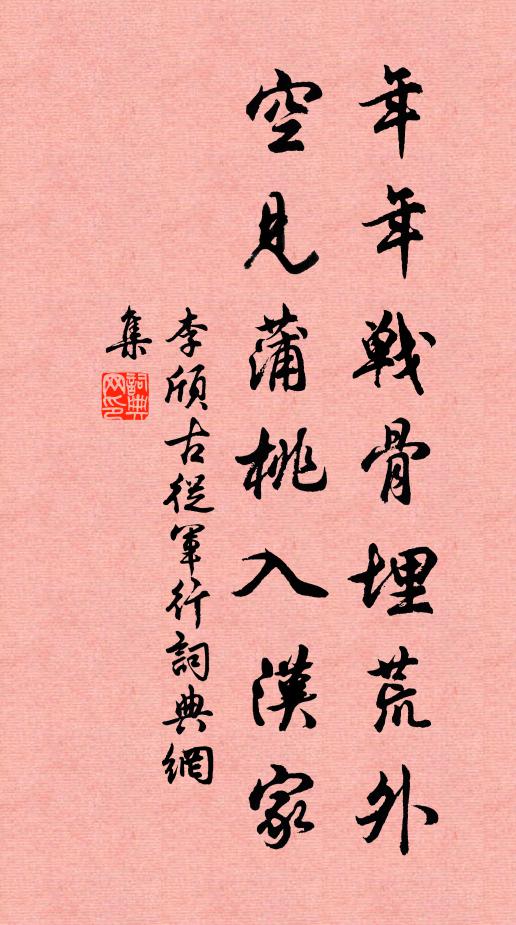 年年戰骨埋荒外
空見蒲桃入漢家
李頎古從軍行詞典網
集
詞典網印